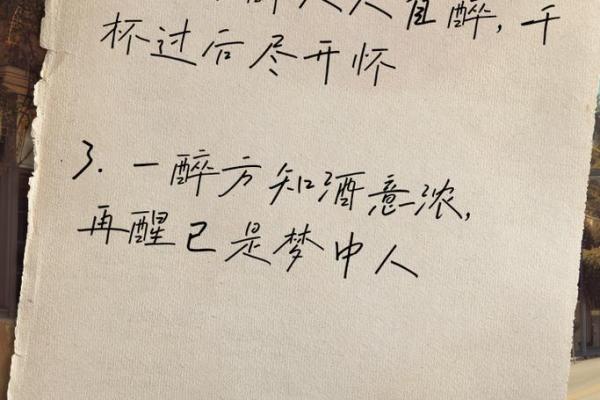 人人醉,千
杯过后尽开怀
3. 一醉方知酒意浓,
再醒已是梦中人